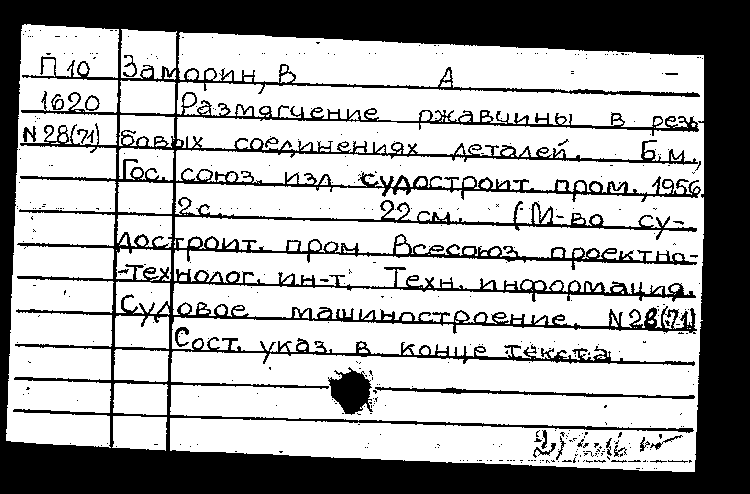 П 10 Заморин, В А —
1620 Размягчение ржавчины в резь-
N 28(71) бовых соединениях деталей. Б.м.,
Гос. союз. изд. судостроит. пром., 1956.
2 с. 22 см. (М-во су-
достроит. пром. Всесоюз. проектно-
-технолог. ин-т. Техн. информация.
Судовое машиностроение. N 28(71)
Сост. указ. в конце текста.